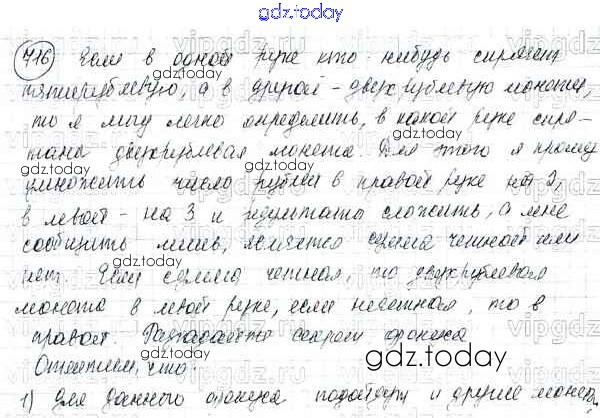 gdz.today
716 Если в одной руке кто-нибудь спрячет
пятирублевую, а в другой - двухрублевую монету,
то я могу легко определить, в какой руке спря-
тана двухрублевая монета. Для этого я прошу
умножить число рублей в правой руке на 2,
в левой - на 3 и результаты сложить, а мне
сообщить лишь, является сумма четной или
нет. Если сумма четная, то двухрублевая
монета в левой руке, если нечетная, то в
правой. Разгадайте секрет фокуса
Отметим, что:
1) Для данного фокуса подойдут и другие монеты,
gdz.today
gdz.today
gdz.today
gdz.today
gdz.today
vipgdz